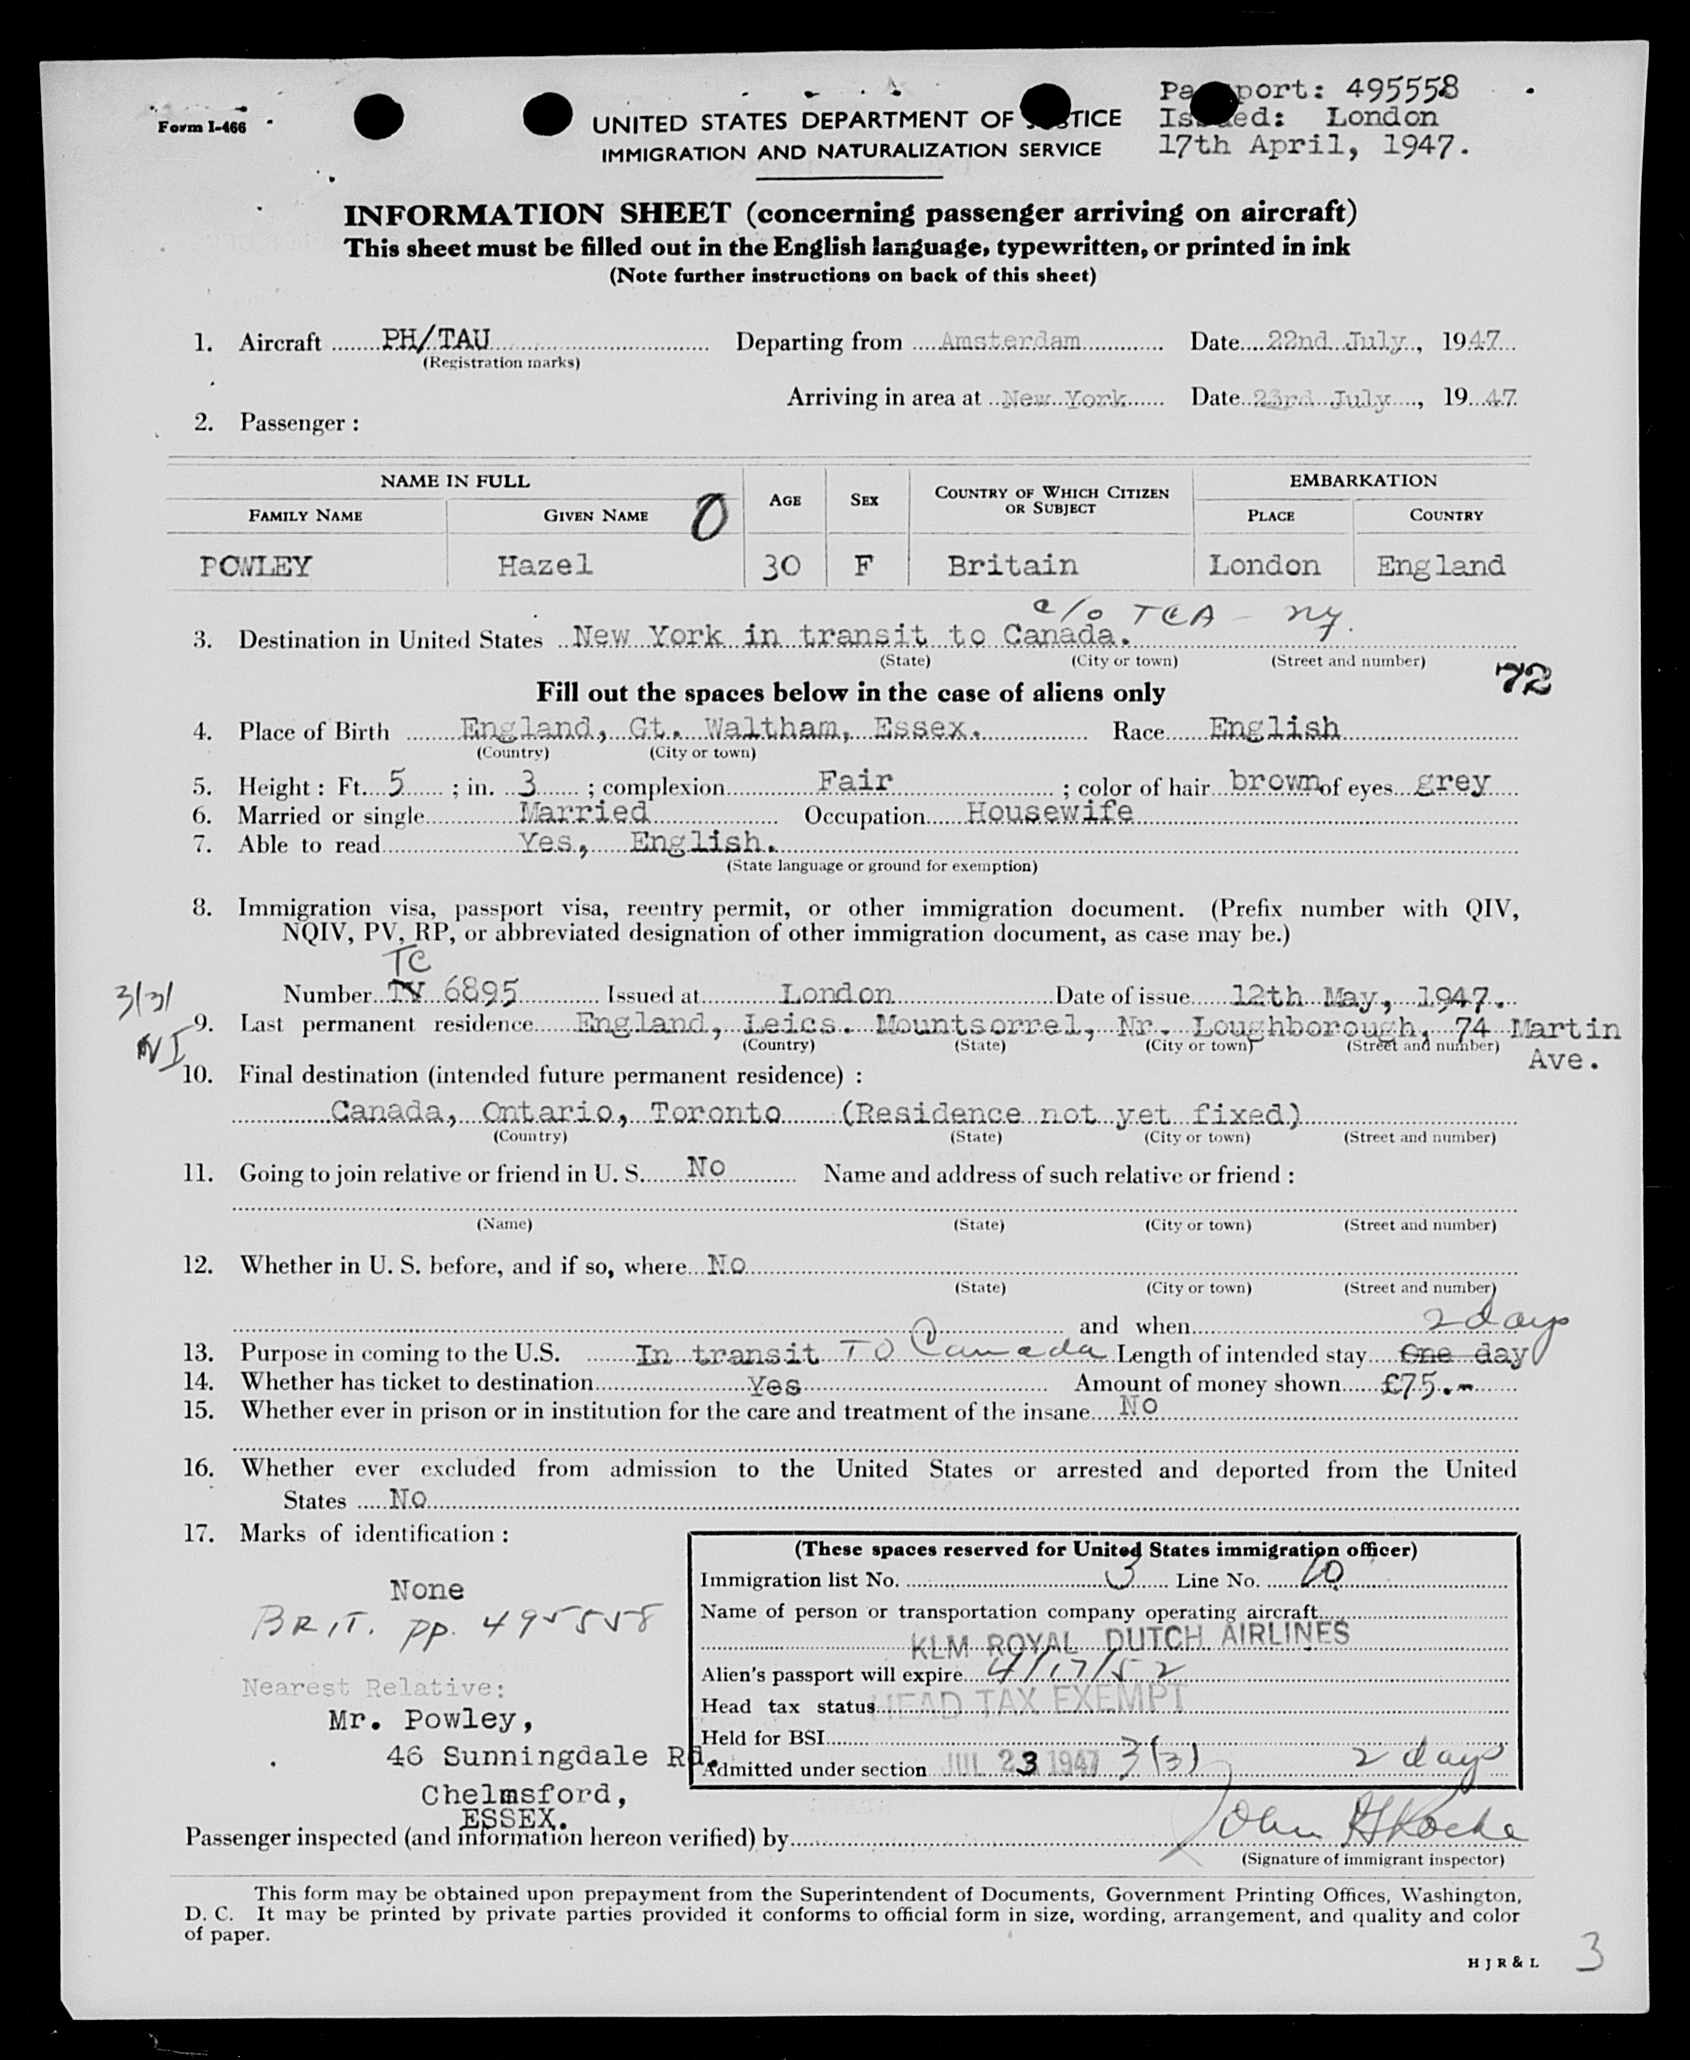 Form I-466
UNITED STATES DEPARTMENT OF TICE
IMMIGRATION AND NATURALIZATION SERVICE
Pa port: 495558
Is ed: London
17th April, 1947.
INFORMATION SHEET (concerning passenger arriving on aircraft)
This sheet must be filled out in the English language, typewritten, or printed in ink
(Note further instructions on back of this sheet)
1. Aircraft PH/TAU Departing from Amsterdam Date 22nd July, 1947
(Registration marks)
Arriving in area at New York Date 23rd July, 19 47
2. Passenger :
NAME IN FULL AGE SEX COUNTRY OF WHICH CITIZEN OR SUBJECT EMBARKATION
FAMILY NAME GIVEN NAME 0 PLACE COUNTRY
POWLEY Hazel 30 F Britain London England
c/o TCA - NY.
3. Destination in United States New York in transit to Canada.
(State) (City or town) (Street and number)
72
Fill out the spaces below in the case of aliens only
4. Place of Birth England, Gt. Waltham, Essex. Race English
(Country) (City or town)
5. Height : Ft. 5 ; in. 3 ; complexion Fair ; color of hair brown of eyes grey
6. Married or single Married Occupation Housewife
7. Able to read Yes, English.
(State language or ground for exemption)
8. Immigration visa, passport visa, reentry permit, or other immigration document. (Prefix number with QIV,
NQIV, PV, RP, or abbreviated designation of other immigration document, as case may be.)
TC
Number TV 6895 Issued at London Date of issue 12th May, 1947.
3(3)
9. Last permanent residence England, Leics. Mountsorrel, Nr. Loughborough, 74 Martin
(Country) (State) (City or town) (Street and number)
Ave.
NI
10. Final destination (intended future permanent residence) :
Canada, Ontario, Toronto (Residence not yet fixed)
(Country) (State) (City or town) (Street and number)
11. Going to join relative or friend in U. S. No Name and address of such relative or friend :
(Name) (State) (City or town) (Street and number)
12. Whether in U. S. before, and if so, where No
(State) (City or town) (Street and number)
and when 2 days
13. Purpose in coming to the U.S. In transit TO Canada Length of intended stay One day
14. Whether has ticket to destination Yes Amount of money shown £75.-
15. Whether ever in prison or in institution for the care and treatment of the insane No
16. Whether ever excluded from admission to the United States or arrested and deported from the United
States No
17. Marks of identification :
None
BRIT. pp. 495558
Nearest Relative:
Mr. Powley,
46 Sunningdale Rd.
Chelmsford,
ESSEX.
(These spaces reserved for United States immigration officer)
Immigration list No. 3 Line No. 10
Name of person or transportation company operating aircraft
KLM ROYAL DUTCH AIRLINES
Alien's passport will expire 4/17/52
Head tax status HEAD TAX EXEMPT
Held for BSI
Admitted under section JUL 23 1947 3(3) 2 days
Passenger inspected (and information hereon verified) by John H Roche
(Signature of immigrant inspector)
This form may be obtained upon prepayment from the Superintendent of Documents, Government Printing Offices, Washington,
D. C. It may be printed by private parties provided it conforms to official form in size, wording, arrangement, and quality and color
of paper.
H J R & L
3